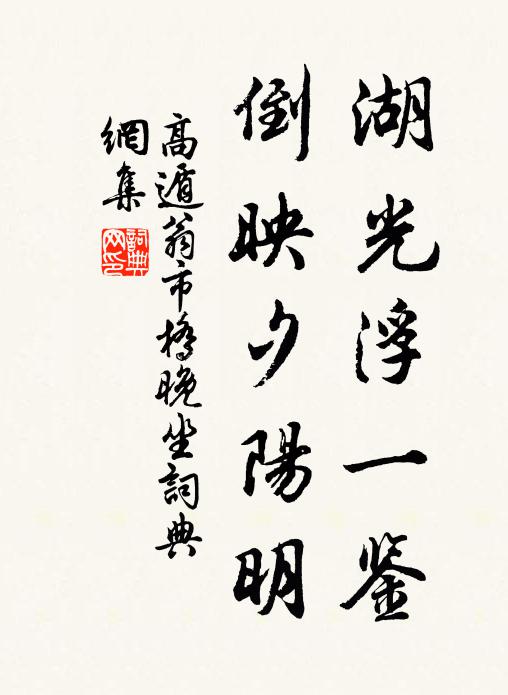 湖光浮一鉴
倒映夕陽明
高遁翁市橋晚坐詞典
網集
詞典
网印